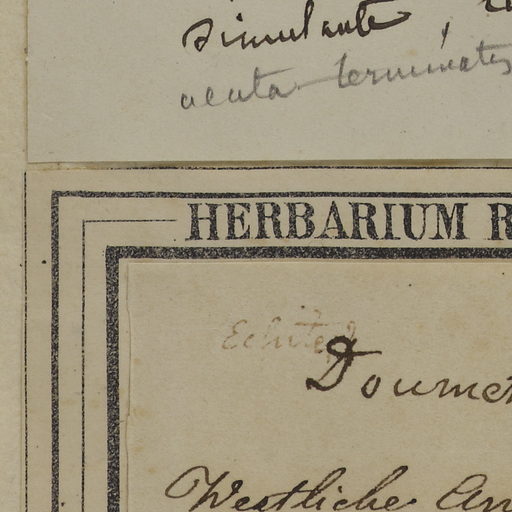 simulante,
acuta terminatis
HERBARIUM R
Echites
Doumet
Westliche An